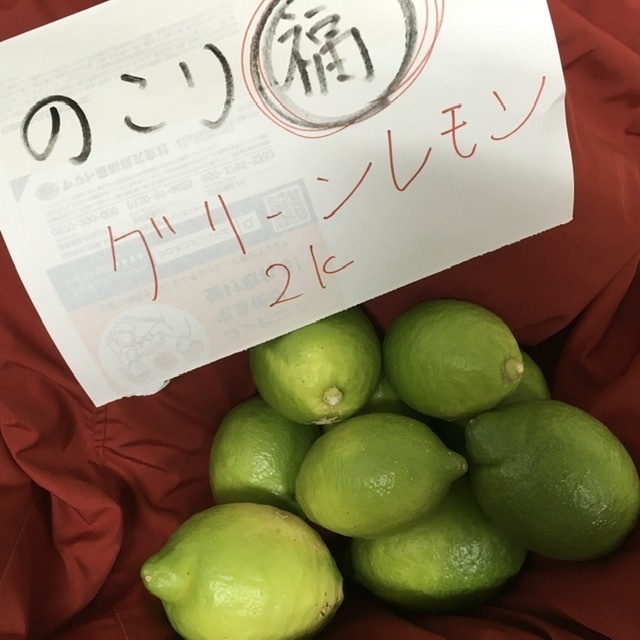 のこり福
グリーンレモン
2k